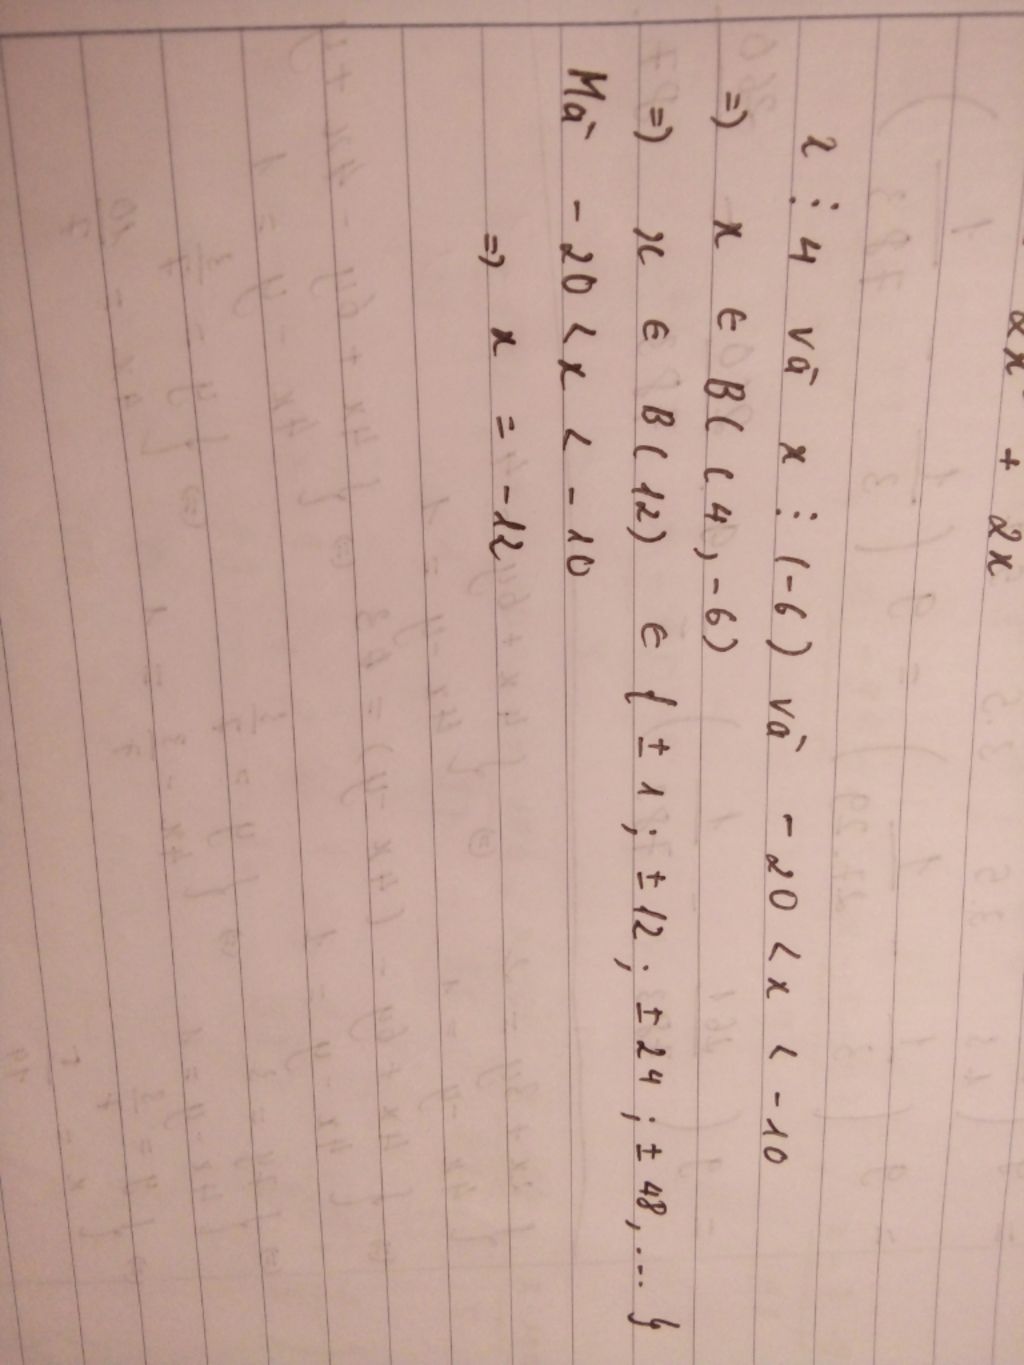 2x + 2x
x ⋮ 4 và x ⋮ (-6) và -20 < x < -10
=) x ∈ B( (4, -6)
=) x ∈ B(12) ∈ { ±1; ±12; ±24; ±48, ... }
Mà -20 < x < -10
=) x = -12